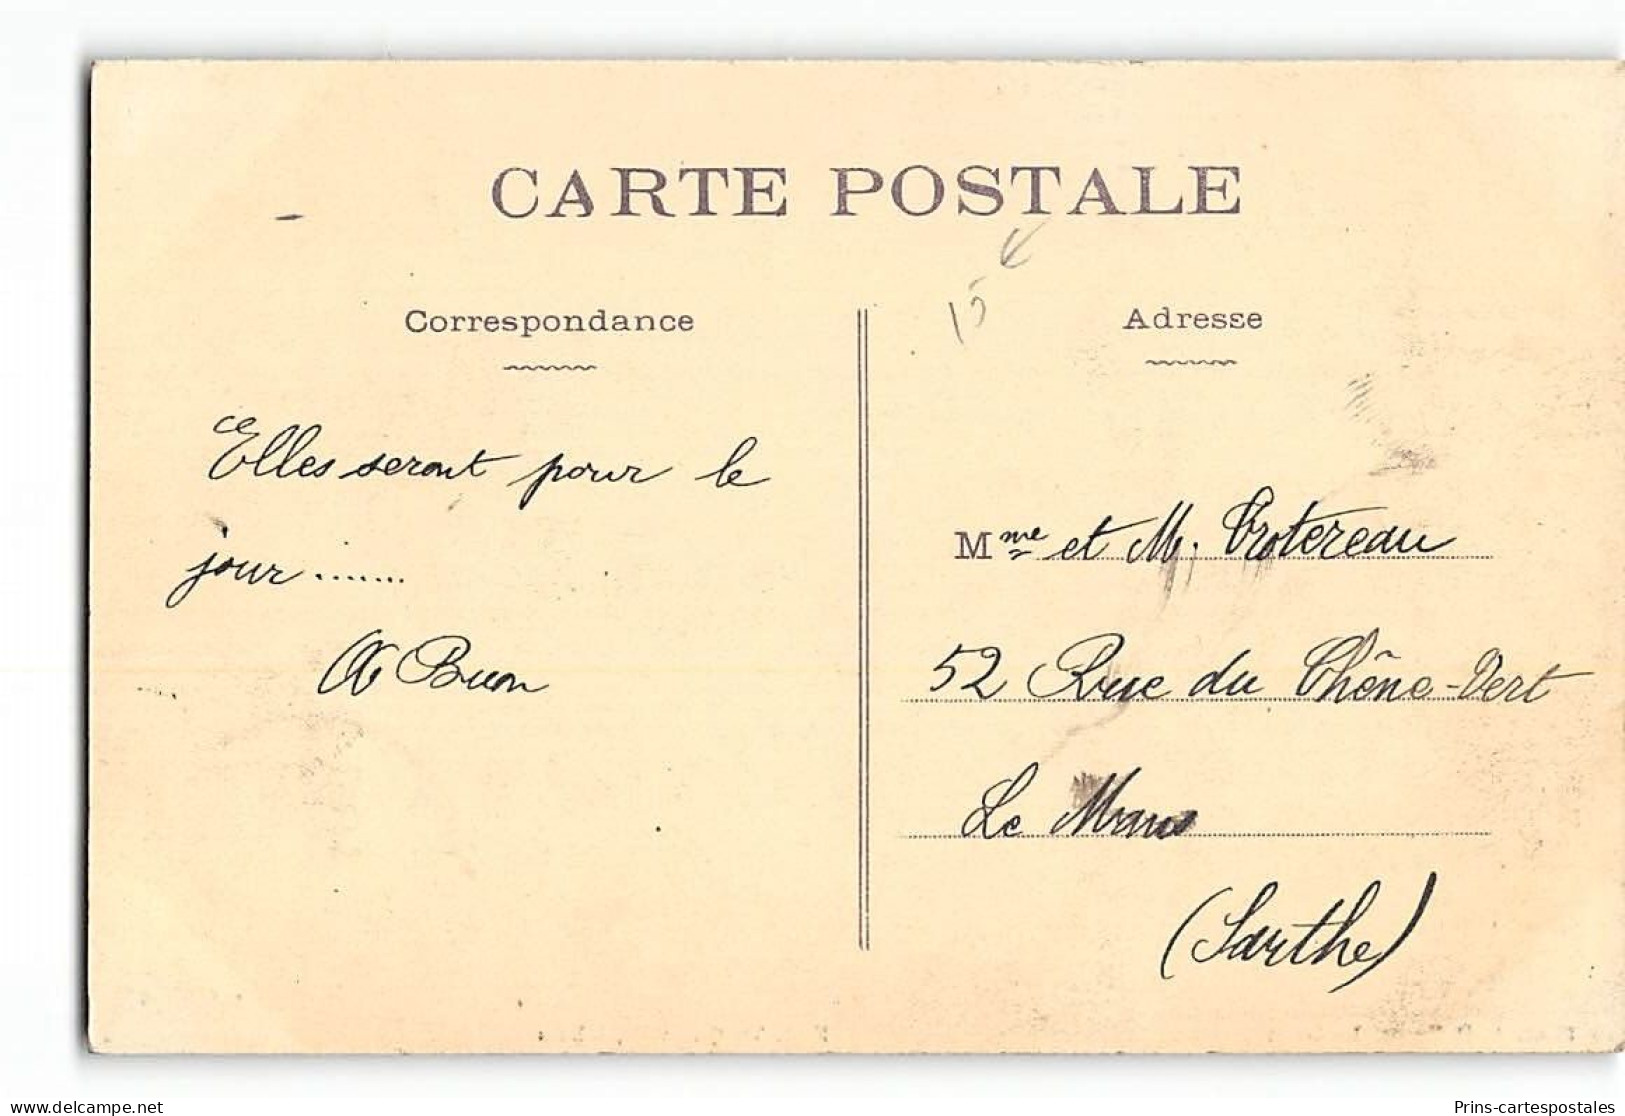 CARTE POSTALE
15
Correspondance
Elles seront pour le
jour .......
Buon
Adresse
Mme et M. Trotereau
52 Rue du Chêne-Vert
Le Mans
(Sarthe)
www.delcampe.net
Prins-cartespostales